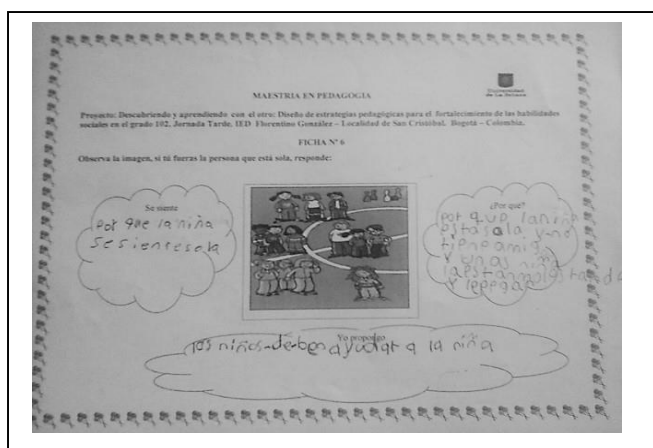 MAESTRIA EN PEDAGOGIA
Universidad
de La Sabana
Proyecto: Descubriendo y aprendiendo con el otro: Diseño de estrategias pedagógicas para el fortalecimiento de las habilidades
sociales en el grado 102, Jornada Tarde, IED Florentino González – Localidad de San Cristóbal. Bogotá – Colombia.
FICHA Nº 6
Observa la imagen, si tú fueras la persona que está sola, responde:
Se siente
Por que la niña
se siente sola
¿Por qué?
por que la niña
esta sola y no
tiene amigo
y unas niña
la estan molestando
y le pegan
Yo propongo
los niños deben ayudar a la niña